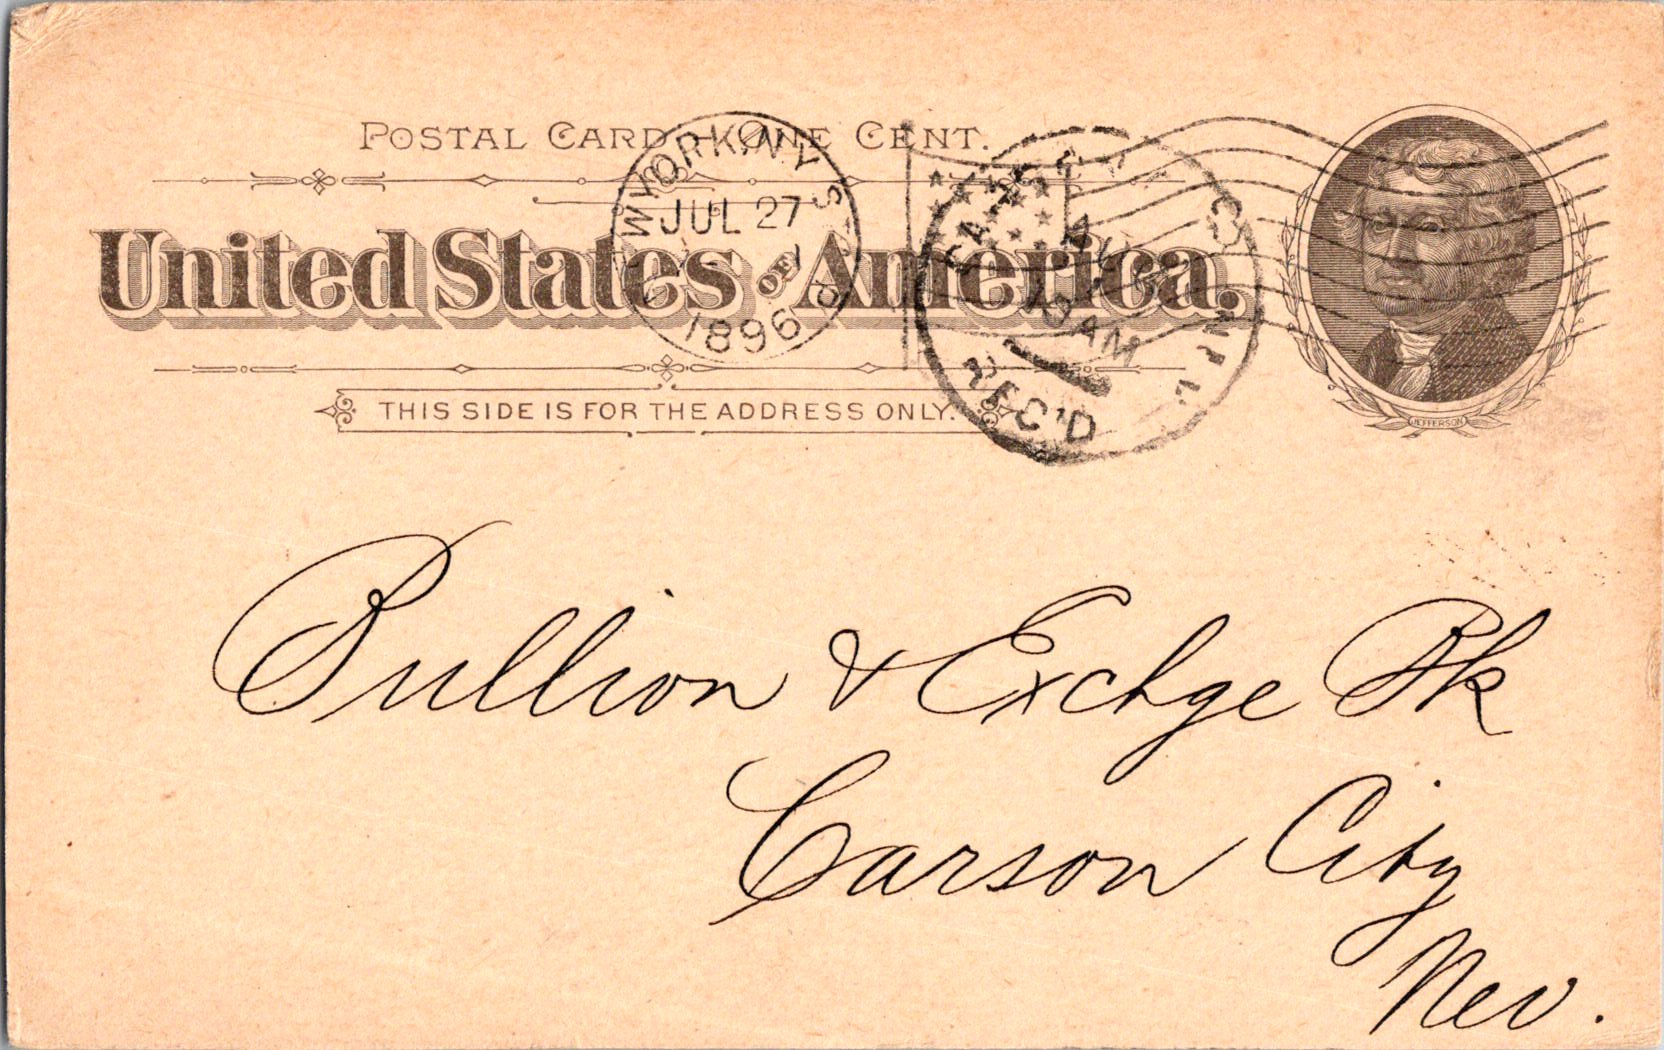 POSTAL CARD — ONE CENT.
United States OF America.
THIS SIDE IS FOR THE ADDRESS ONLY.
NEW YORK, N.Y.
JUL 27
1896
REC'D
10 AM
JEFFERSON
Bullion & Exchge Bk
Carson City
Nev.